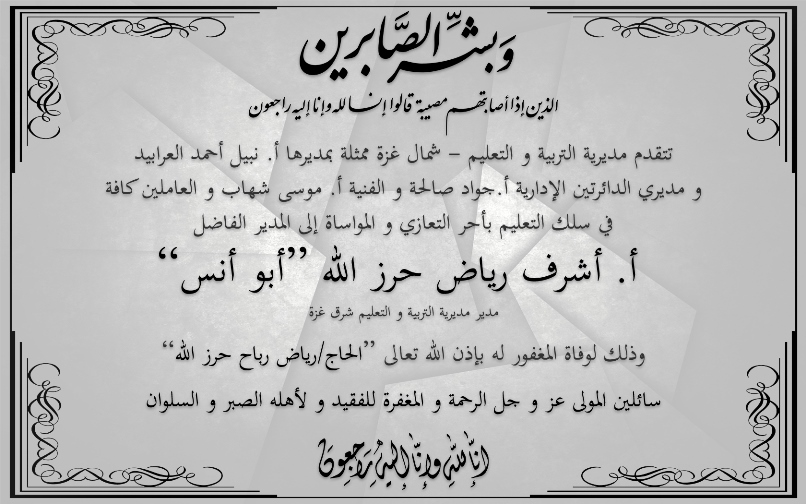 وَبشِّر الصَّابرين
الذين إذا أصابتهم مصيبة قالوا إنا لله وإنا إليه راجعون
تتقدم مديرية التربية و التعليم – شمال غزة ممثلة بمديرها أ. نبيل أحمد العرابيد
و مديري الدائرتين الإدارية أ.جواد صالحة و الفنية أ. موسى شهاب و العاملين كافة
في سلك التعليم بأحر التعازي و المواساة إلى المدير الفاضل
أ. أشرف رياض حرز الله ”أبو أنس“
مدير مديرية التربية و التعليم شرق غزة
وذلك لوفاة المغفور له بإذن الله تعالى ”الحاج/رياض رباح حرز الله“
سائلين المولى عز و جل الرحمة و المغفرة للفقيد و لأهله الصبر و السلوان
إنا لله وإنا إليه راجعون